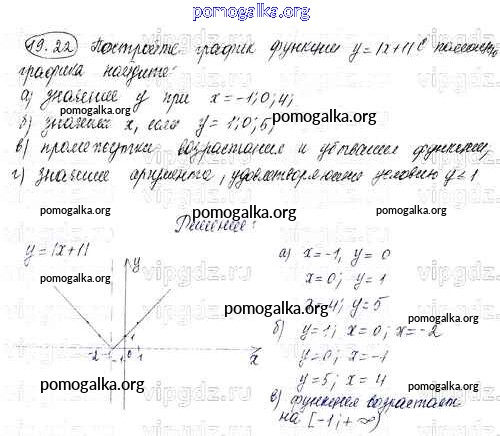 pomogalka.org
19.22 Постройте график функции y = |x+1| С помощью
графика найдите:
а) значение y при x = -1; 0; 4;
б) значения x, если y = 1; 0; 5;
в) промежутки возрастания и убывания функции;
г) значение аргумента, удовлетворяющие условию y < 1
pomogalka.org
pomogalka.org
pomogalka.org
Решение:
y = |x+1|
y
а) x = -1, y = 0
x = 0; y = 1
x = 4; y = 5
б) y = 1; x = 0; x = -2
y = 0; x = -1
y = 5; x = 4
в) функция возрастает
на [-1; +∞)
-2 -1 0 1
1
x
pomogalka.org
pomogalka.org
pomogalka.org
pomogalka.org
vipgdz.ru
vipgdz.ru